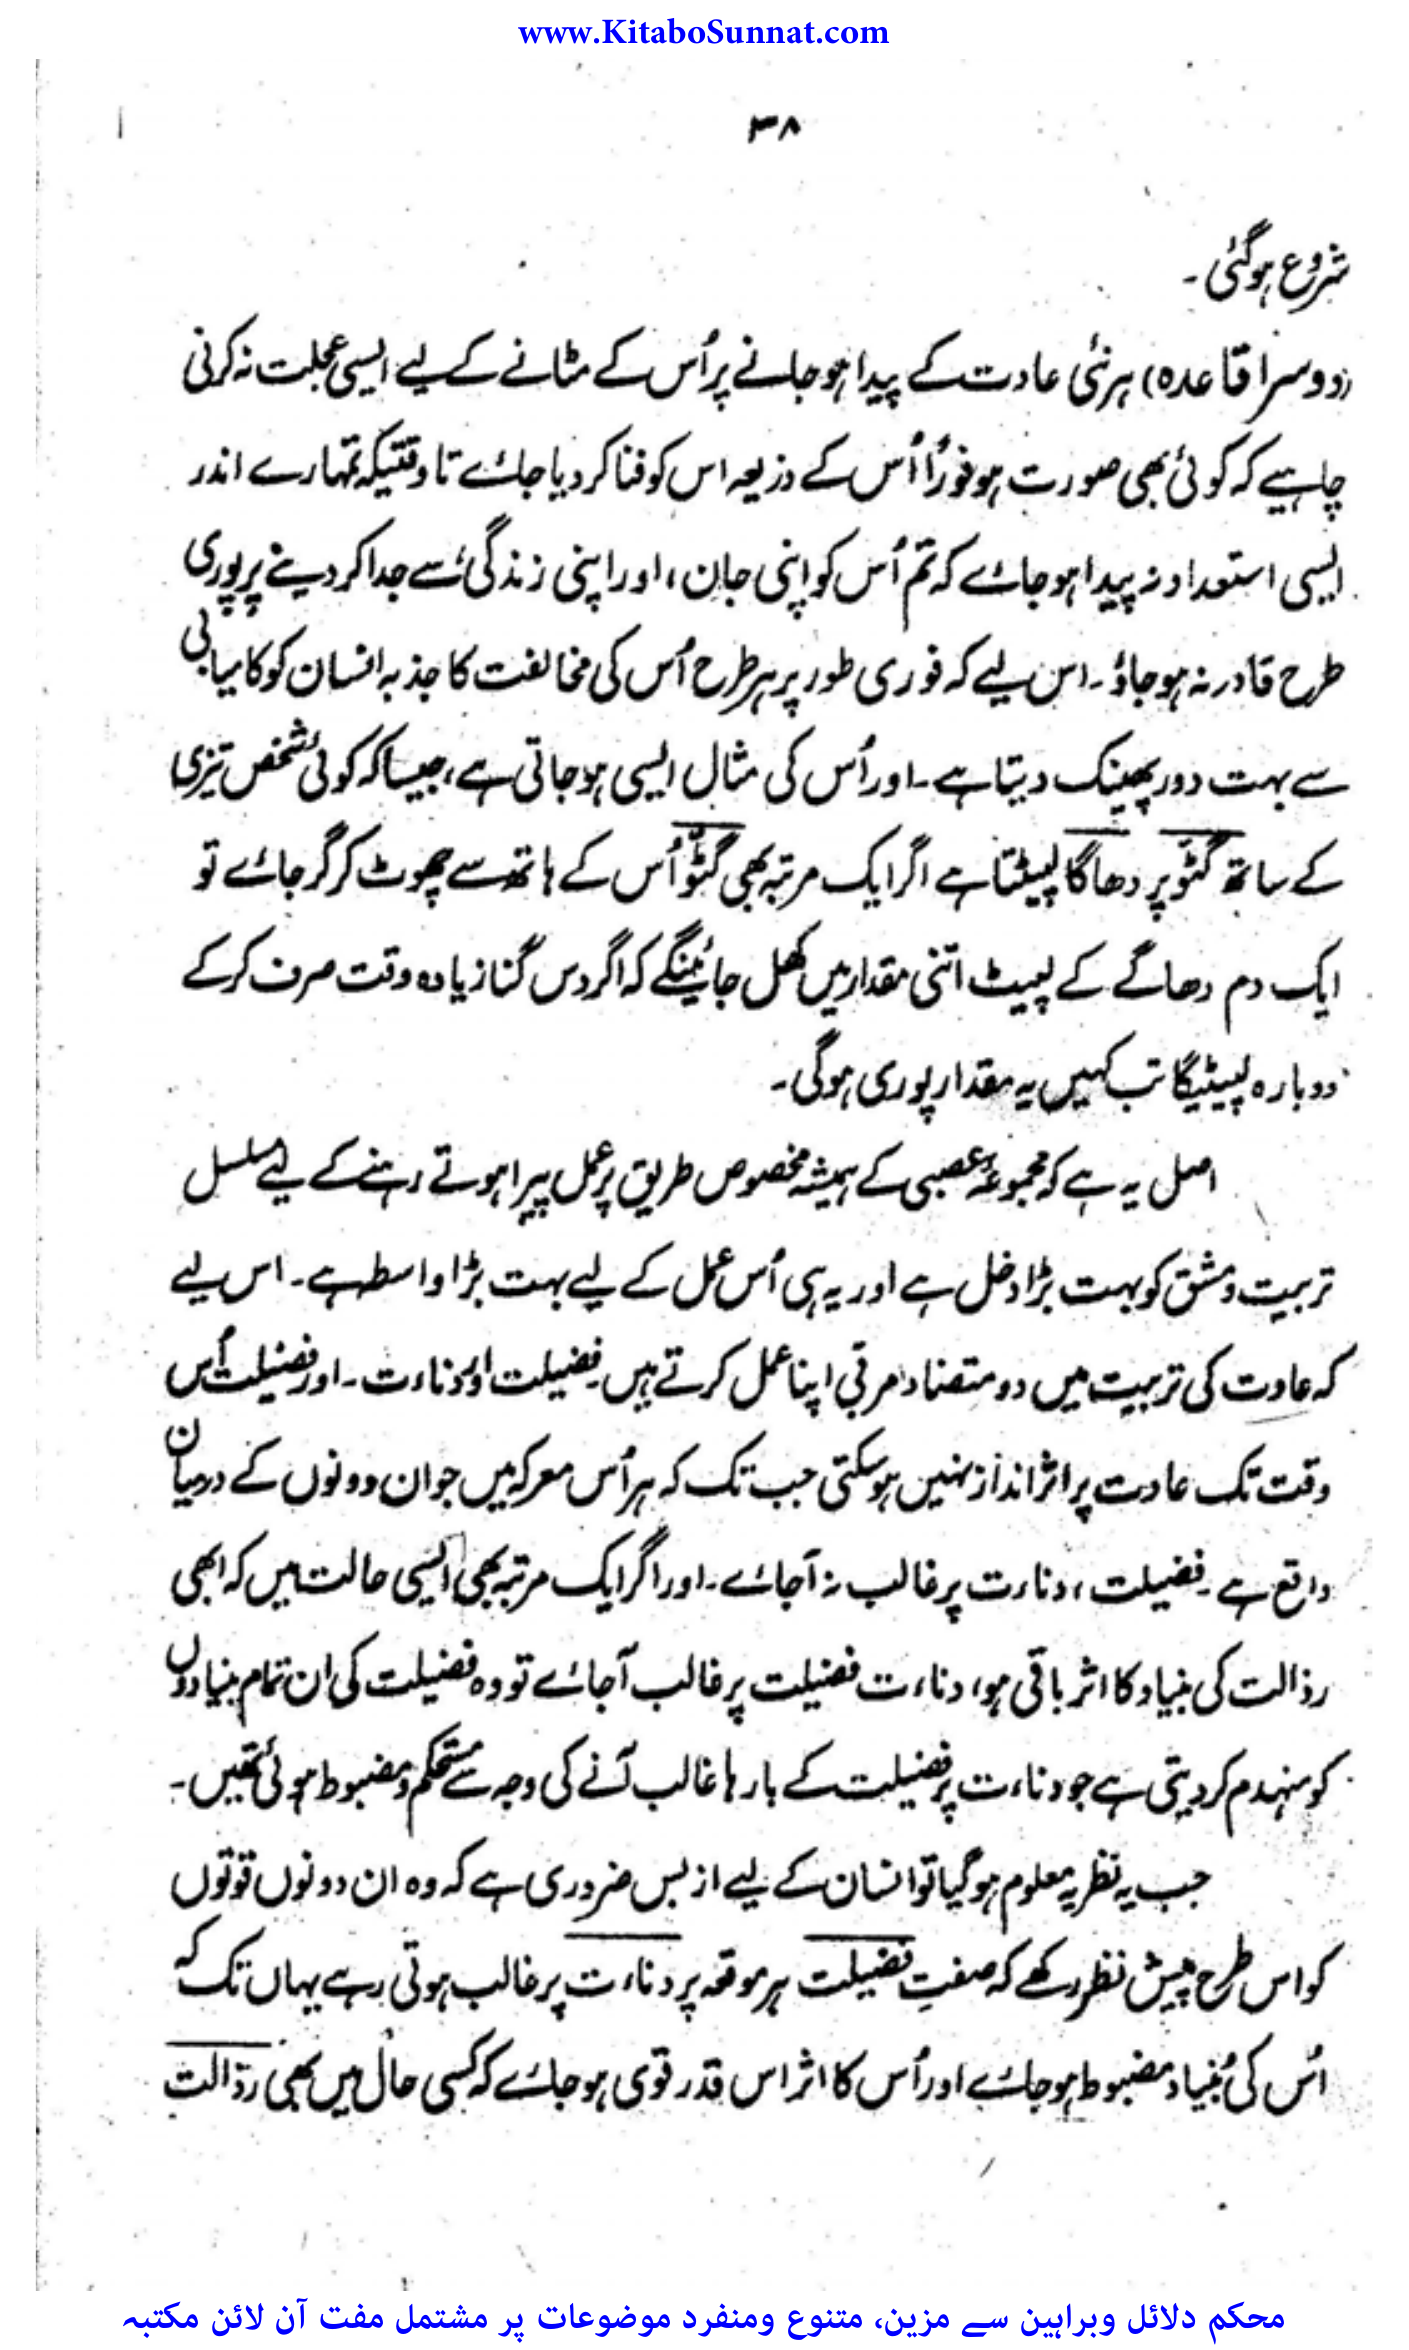 www.KitaboSunnat.com
۳۸
شروع ہوگئی۔
(دوسرا قاعدہ) ہر نئی عادت کے پیدا ہو جانے پر اُس کے مٹانے کے لیے ایسی عجلت نہ کرنی
چاہیے کہ کوئی بھی صورت ہو فوراً اُس کے ذریعہ اس کو فنا کر دیا جائے تا وقتیکہ تمہارے اندر
ایسی استعداد نہ پیدا ہو جائے کہ تم اُس کو اپنی جان، اور اپنی زندگی سے جدا کر دینے پر پوری
طرح قادر نہ ہو جاؤ۔ اس لیے کہ فوری طور پر ہر طرح اُس کی مخالفت کا جذبہ انسان کو کامیابی
سے بہت دور پھینک دیتا ہے۔ اور اُس کی مثال ایسی ہو جاتی ہے، جیسا کہ کوئی شخص تیزی
کے ساتھ گٹّو پر دھاگا لپیٹتا ہے اگر ایک مرتبہ بھی گٹّو اُس کے ہاتھ سے چھوٹ کر گر جائے تو
ایک دم دھاگے کے لپیٹ اتنی مقدار میں کھل جائینگے کہ اگر دس گنا زیادہ وقت صرف کر کے
دوبارہ لپیٹیگا تب کہیں یہ مقدار پوری ہوگی۔
اصل یہ ہے کہ مجموعۂ عصبی کے ہمیشہ مخصوص طریق پر عمل پیرا ہوتے رہنے کے لیے مسلسل
تربیت و مشق کو بہت بڑا دخل ہے اور یہ ہی اُس عمل کے لیے بہت بڑا واسطہ ہے۔ اس لیے
کہ عادت کی تربیت میں دو متضاد مربّی اپنا عمل کرتے ہیں۔ فضیلت اور دناءت۔ اور فضیلت اُس
وقت تک عادت پر اثر انداز نہیں ہو سکتی جب تک کہ ہر اُس معرکہ میں جو ان دونوں کے درمیان
واقع ہے۔ فضیلت، دناءت پر غالب نہ آجائے۔ اور اگر ایک مرتبہ بھی ایسی حالت میں کہ ابھی
رذالت کی بنیاد کا اثر باقی ہو، دناءت فضیلت پر غالب آجائے تو وہ فضیلت کی ان تمام بنیادوں
کو منہدم کر دیتی ہے جو دناءت پر فضیلت کے بارہا غالب آنے کی وجہ سے مستحکم و مضبوط ہوئی تھیں۔
جب یہ نظریہ معلوم ہو گیا تو انسان کے لیے از بس ضروری ہے کہ وہ ان دونوں قوتوں
کو اس طرح پیش نظر رکھے کہ صفتِ فضیلت ہر موقعہ پر دناءت پر غالب ہوتی رہے یہاں تک کہ
اُس کی بُنیاد مضبوط ہو جائے اور اُس کا اثر اس قدر قوی ہو جائے کہ کسی حال میں بھی رذالت
محکم دلائل وبراہین سے مزین، متنوع ومنفرد موضوعات پر مشتمل مفت آن لائن مکتبہ